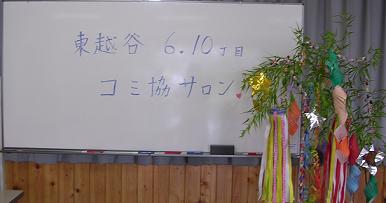 東越谷 6.10丁目
コミ協サロン